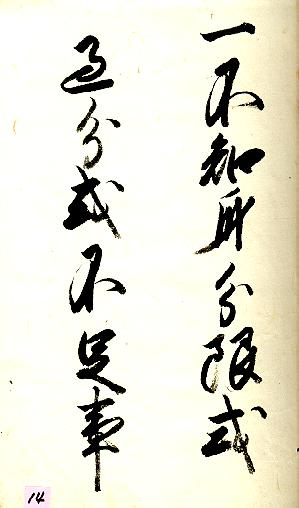 一不知身分限或
過分或不足事
14